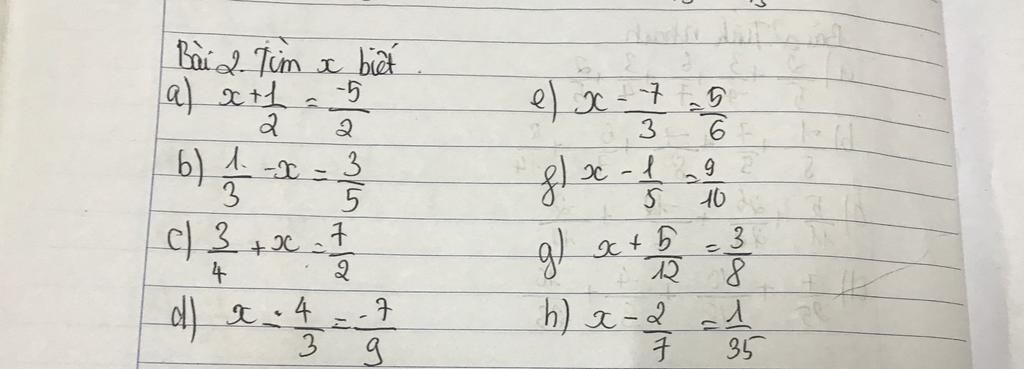 Bài 2. Tìm x biết.
a) x + 1/2 = -5/2
b) 1/3 - x = 3/5
c) 3/4 + x = 7/2
d) x - 4/3 = -7/9
e) x - -7/3 = 5/6
f) x - 1/5 = 9/10
g) x + 5/12 = 3/8
h) x - 2/7 = 1/35